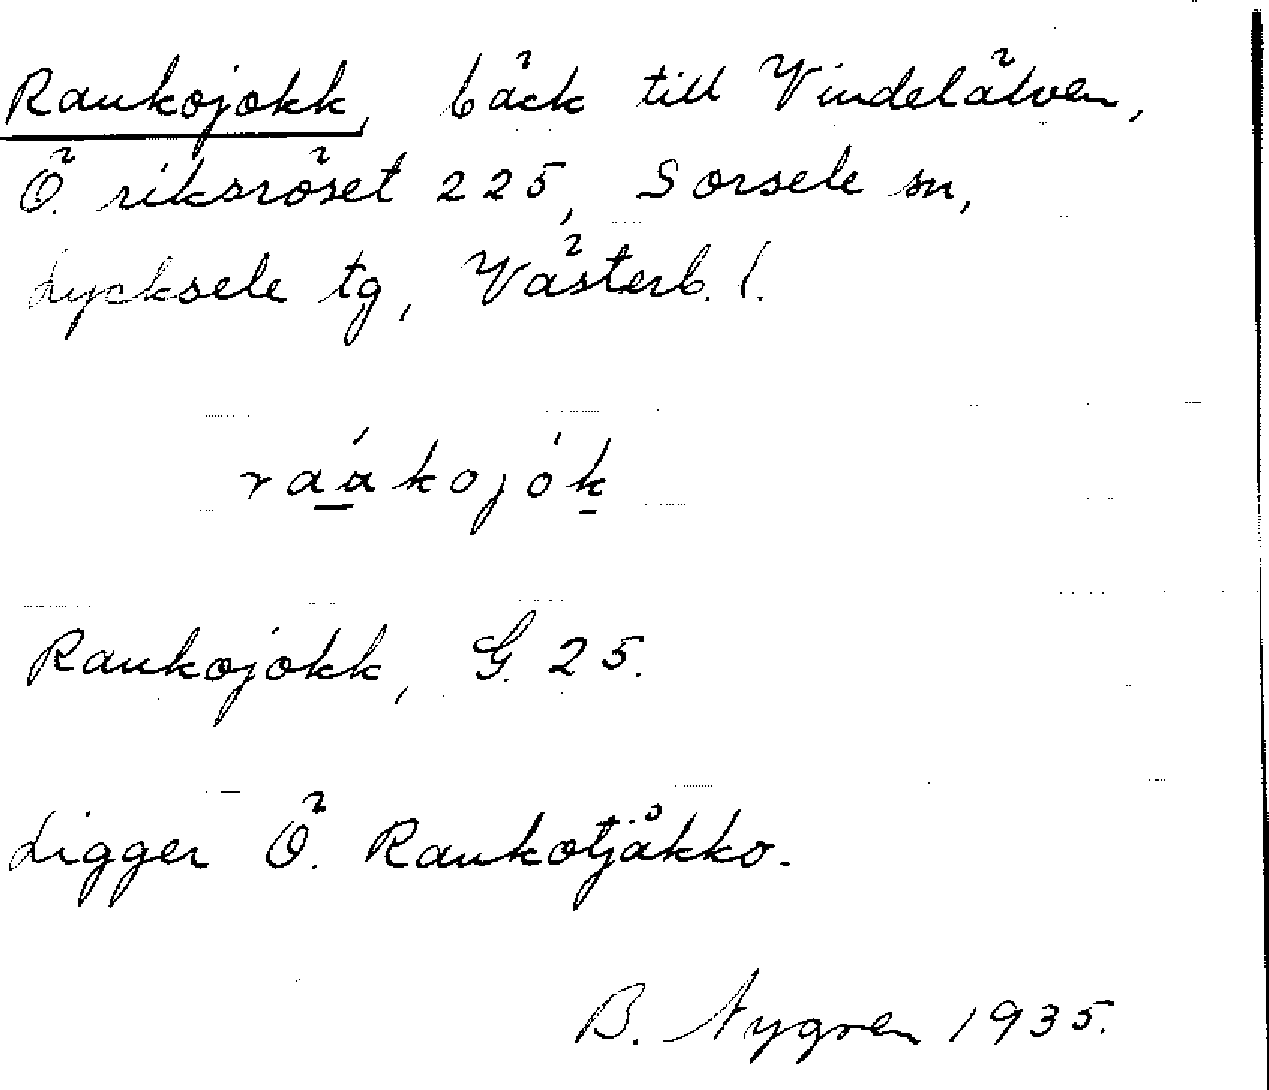 Raukojokk, bäck till Vindelälven,
Ö. riksröset 225, Sorsele sn,
Lycksele tg, Västerb. l.
raá̱kojóḵ
Raukojokk, G. 25.
Ligger Ö. Raukotjåkko.
B. Nygren 1935.